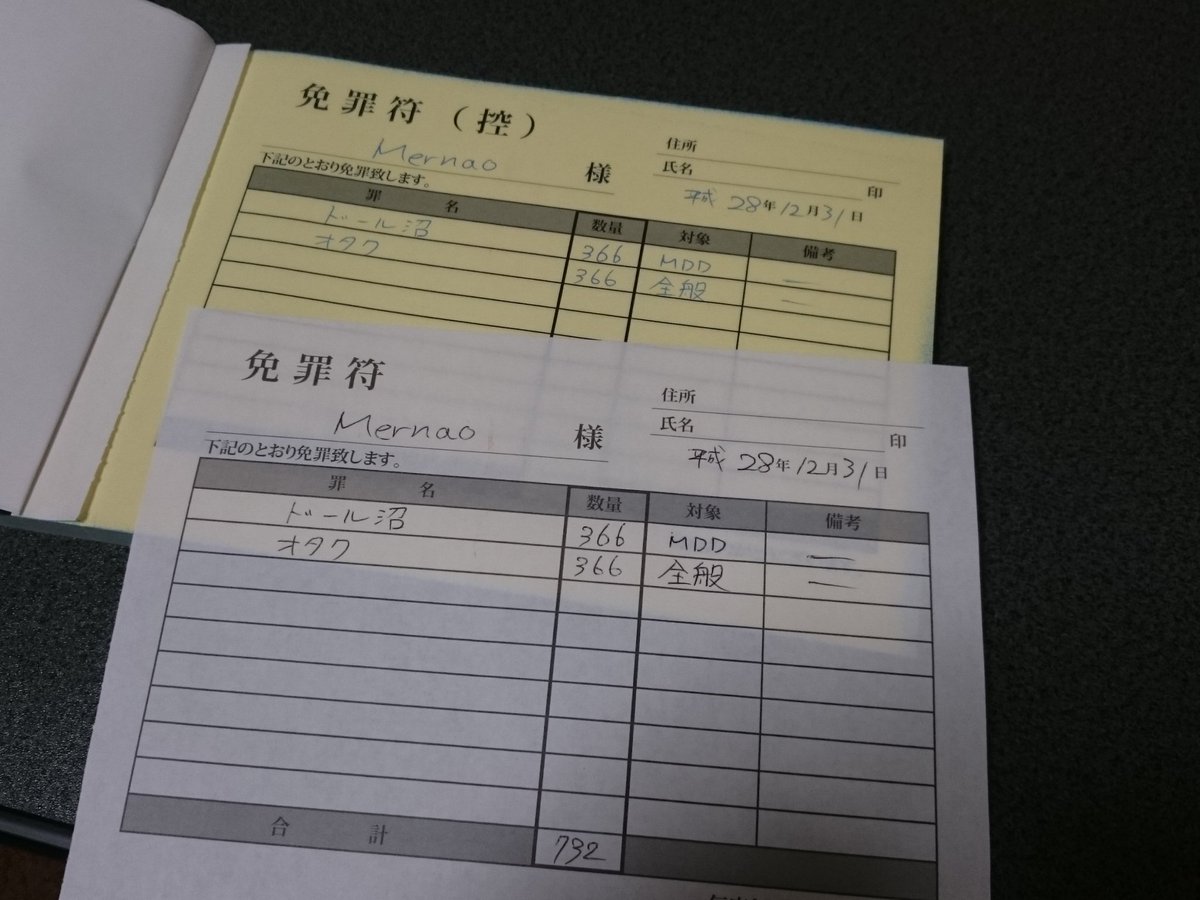 免罪符（控）
Mernao 様
下記のとおり免罪致します。
住所
氏名 印
平成28年12月31日
罪名 数量 対象 備考
ドール沼 366 MDD ー
オタク 366 全般 ー
免罪符
Mernao 様
下記のとおり免罪致します。
住所
氏名 印
平成28年12月31日
罪名 数量 対象 備考
ドール沼 366 MDD ー
オタク 366 全般 ー
合計 732